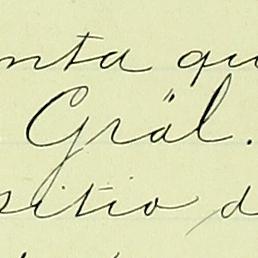 nta qu
Gräl.
sitio d